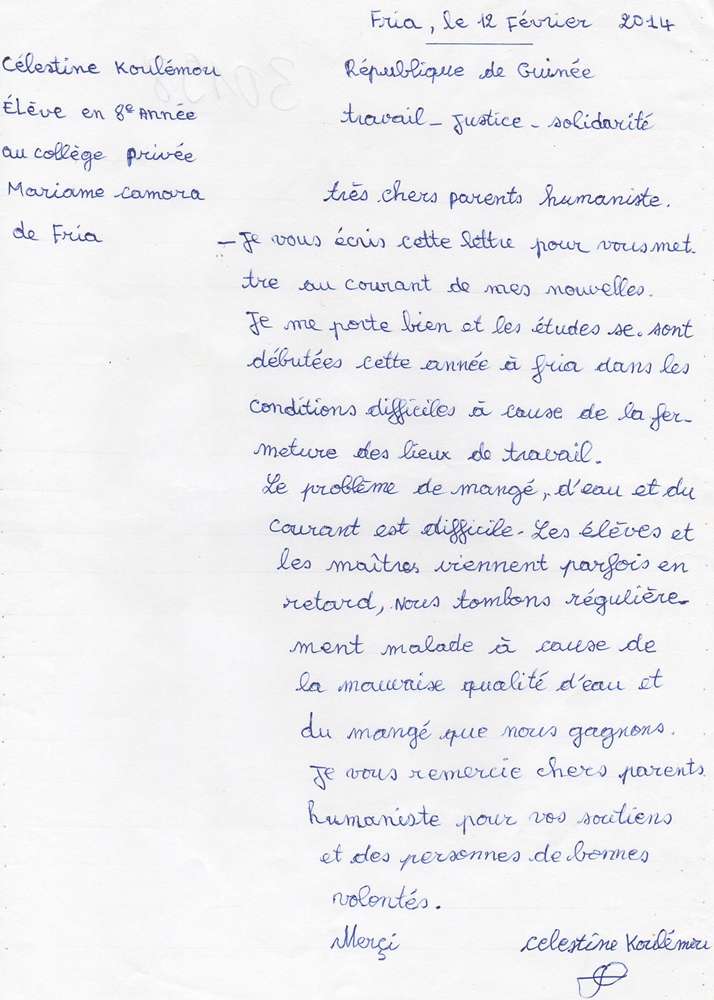 Fria, le 12 Février 2014
Célestine Koulémou
Élève en 8e Année
au collège privée
Mariame Camara
de Fria
République de Guinée
travail - Justice - solidarité
très chers parents humaniste.
- Je vous écris cette lettre pour vous met.
tre au courant de mes nouvelles.
Je me porte bien et les études se. sont
débutées cette année à fria dans les
conditions difficiles à cause de la fer-
meture des lieux de travail.
Le problème de mangé, d'eau et du
courant est difficile. Les élèves et
les maîtres viennent parfois en
retard, Nous tombons régulière-
ment malade à cause de
la mauvaise qualité d'eau et
du mangé que nous gagnons.
Je vous remercie chers parents
humaniste pour vos soutiens
et des personnes de bonnes
volontés.
Merçi
Celestine Koulémou